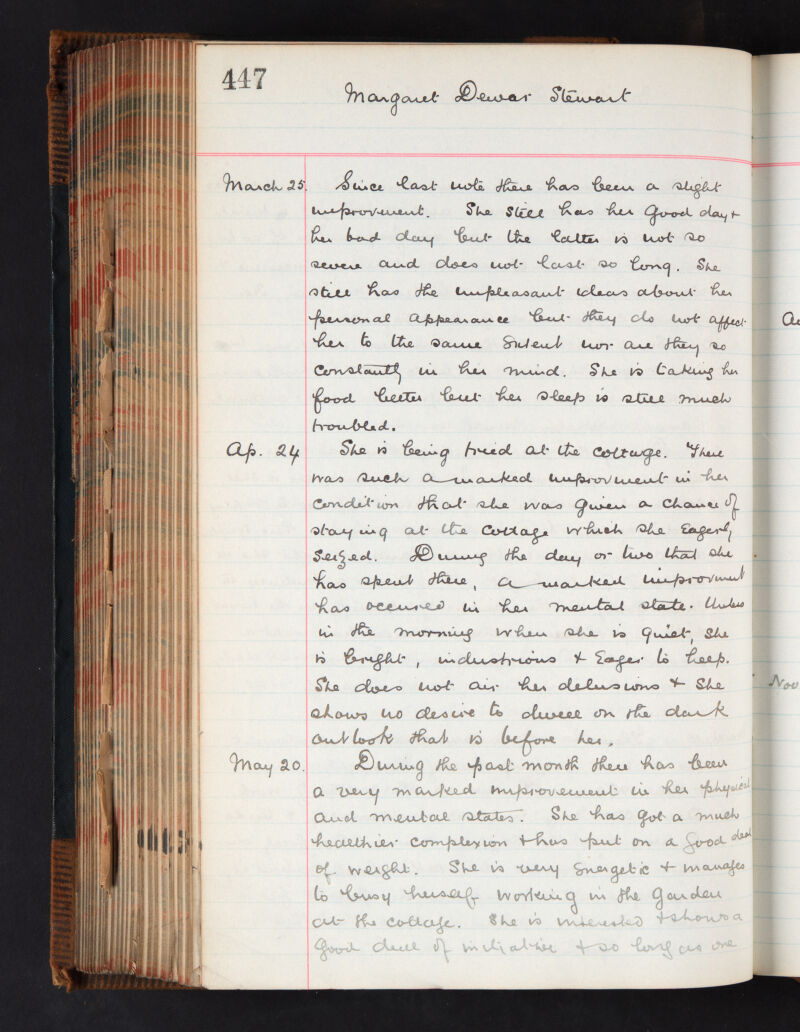 447
Margaret Dewar Stewart
March 25. Since last note there has been a slight
improvement. She still has her good day &
her bad day but the latter is not so
severe and does not last so long. She
still has the unpleasant ideas about her
personal appearance but they do not affect
her to the same extent nor are they so
constantly in her mind. She is taking her
food better but her sleep is still much
troubled.
Ap. 24 She is being tried at the cottage. There
was such a marked improvment in her
condition that she was given a chance of
staying at the cottage which she eagerly
seized. During the day or two that she
has spent there, a marked improvment
has occured in her mental state. Unless
in the morning when she is quiet, she
is bright, industrious & eager to help.
She does not air her delusions & she
shows no desire to dwell on the dark
outlook that is before her.
May 20. During the past month there has been
a very marked improvement in her physical
and mental states. She has got a much
healthier complexion & has put on a good deal
of weight. She is very energetic & manages
to busy herself working in the garden
at the cottage. She is interested & shows a
good deal of initiative & so long as one
Nov